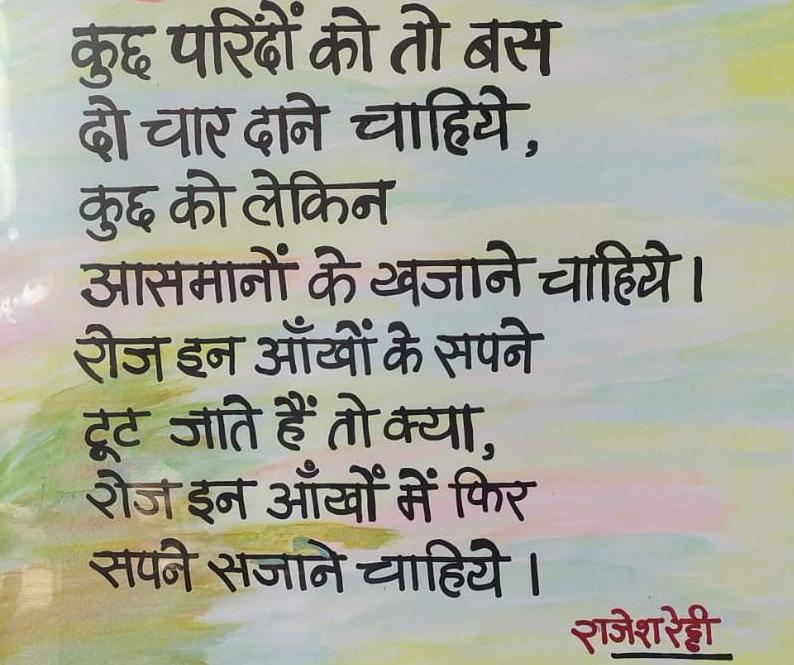 कुछ परिंदों को तो बस
दो चार दाने चाहिये,
कुछ को लेकिन
आसमानों के खजाने चाहिये।
रोज इन आँखों के सपने
टूट जाते हैं तो क्या,
रोज इन आँखों में फिर
सपने सजाने चाहिये।
राजेश रेड्डी